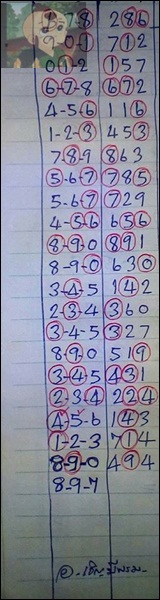 2-7-8 286
9-0-1 712
0-1-2 157
6-7-8 672
4-5-6 116
1-2-3 453
7-8-9 863
5-6-7 785
5-6-7 729
4-5-6 656
8-9-0 891
8-9-0 630
3-4-5 142
2-3-4 360
3-4-5 327
8-9-0 519
3-4-5 431
2-3-4 224
4-5-6 143
1-2-3 714
8-9-0 494
8-9-7